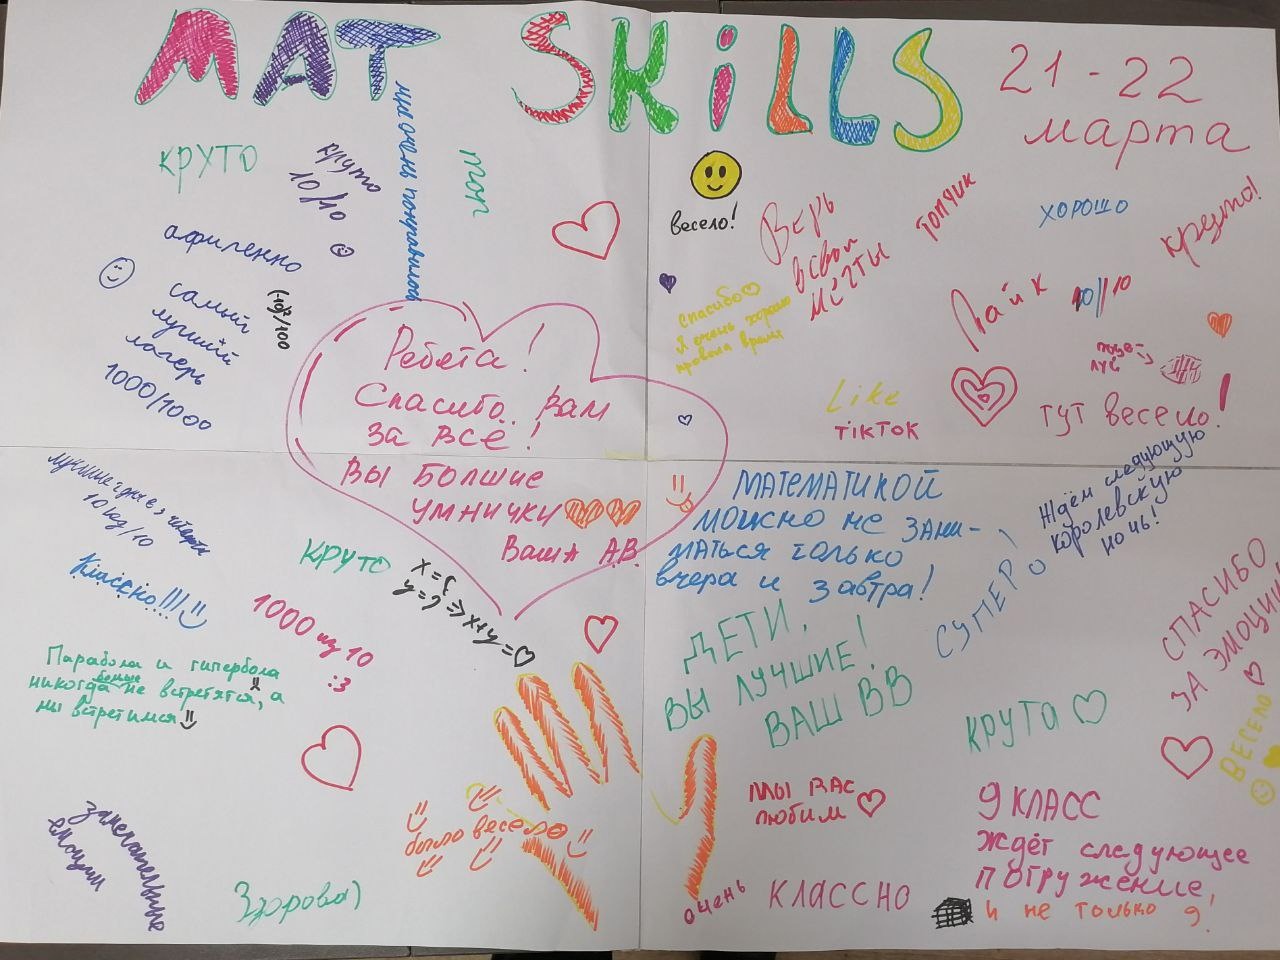 MAT SKiLLS
21-22
марта
КРУТО
круто
10/10
мне очень понравилось
топ
афигенно
самый
лучший
лагерь
1000/1000
весело!
Верь
в свои
мечты
топчик
ХОРОШО
круто!
спасибо
Я очень хорошо
провела время
Лайк
10/10
поце-
луй
Like
TiKTOK
тут весело!
Ребята!
Спасибо Вам
за всё!
Вы болшие
умнички
Ваша А.В.
10 из/10
Классно!!!
КРУТО
x=?
y=? => x+y=♡
1000 из 10
:3
Парабола и гипербола
никогда больше не встретятся, а
мы встретимся
МАТЕМАТИКОЙ
МОЖНО НЕ ЗАНИ-
МАТЬСЯ ТОЛЬКО
вчера и завтра!
СУПЕР!
Ждём следующую
королевскую
ночь!
СПАСИБО
ЗА ЭМОЦИИ
ДЕТИ,
ВЫ ЛУЧШИЕ!
ВАШ ВВ
КРУТА
ВЕСЕЛО
было весело
МЫ ВАС
любим
9 КЛАСС
Ждёт следующее
ПОГРУЖЕНИЕ!
и не только 9!
замечательные
эмоции
Здорова)
очень
КЛАССНО